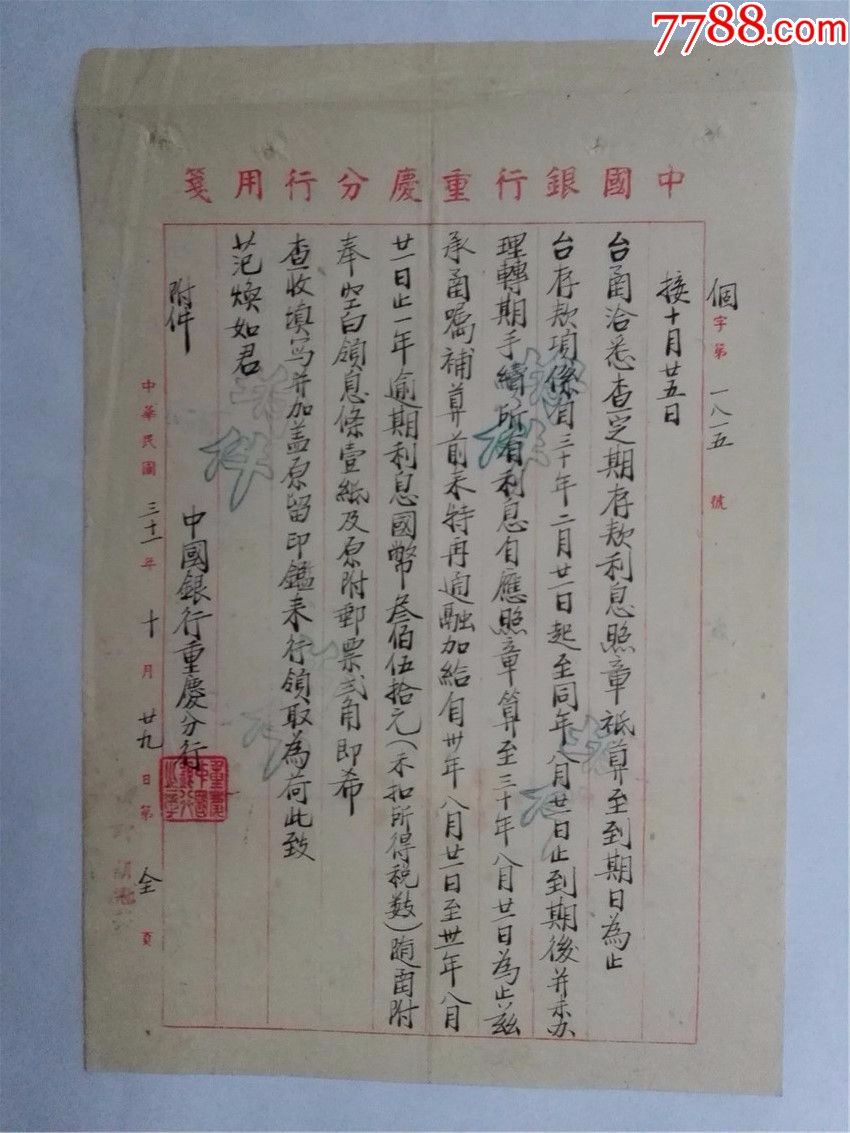 7788.com
中國銀行重慶分行用箋
個字第一八一五號
接十月廿五日
台函洽悉查定期存款利息照章祇算至到期日為止
台存款項係自三十年二月廿一日起至同年八月廿一日止到期後并未办
理轉期手續所有利息自應照章算至三十年八月廿一日為止茲
承函囑補算前來特再通融加給自卅年八月廿一日至卅一年八月
廿一日止一年逾期利息國幣叁佰伍拾元(未扣所得税数)随函附
奉空白領息條壹紙及原附郵票弍角即希
查收填写并加盖原留印鑑来行領取為荷此致
范煥如君
中國銀行重慶分行
附件
中華民國三十一年十月廿九日第全頁